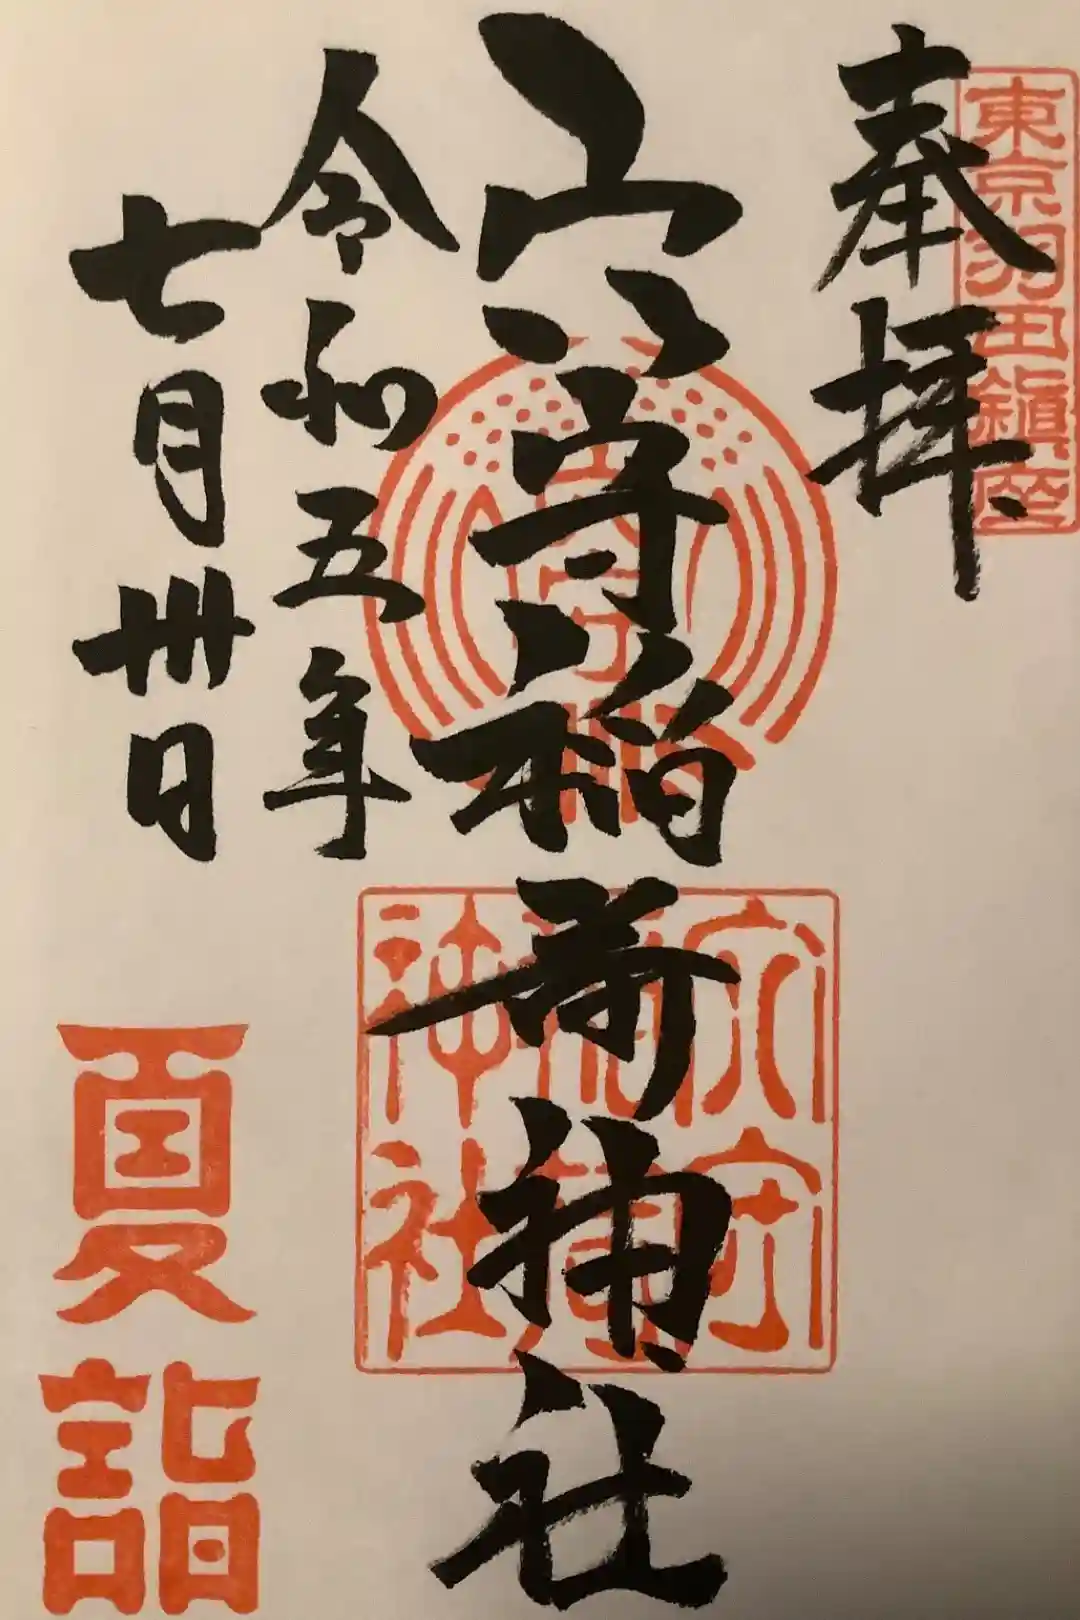 東京羽田鎮座
奉拝
穴守稲荷神社
穴守
稲荷
神社
令和五年
七月卅日
夏詣